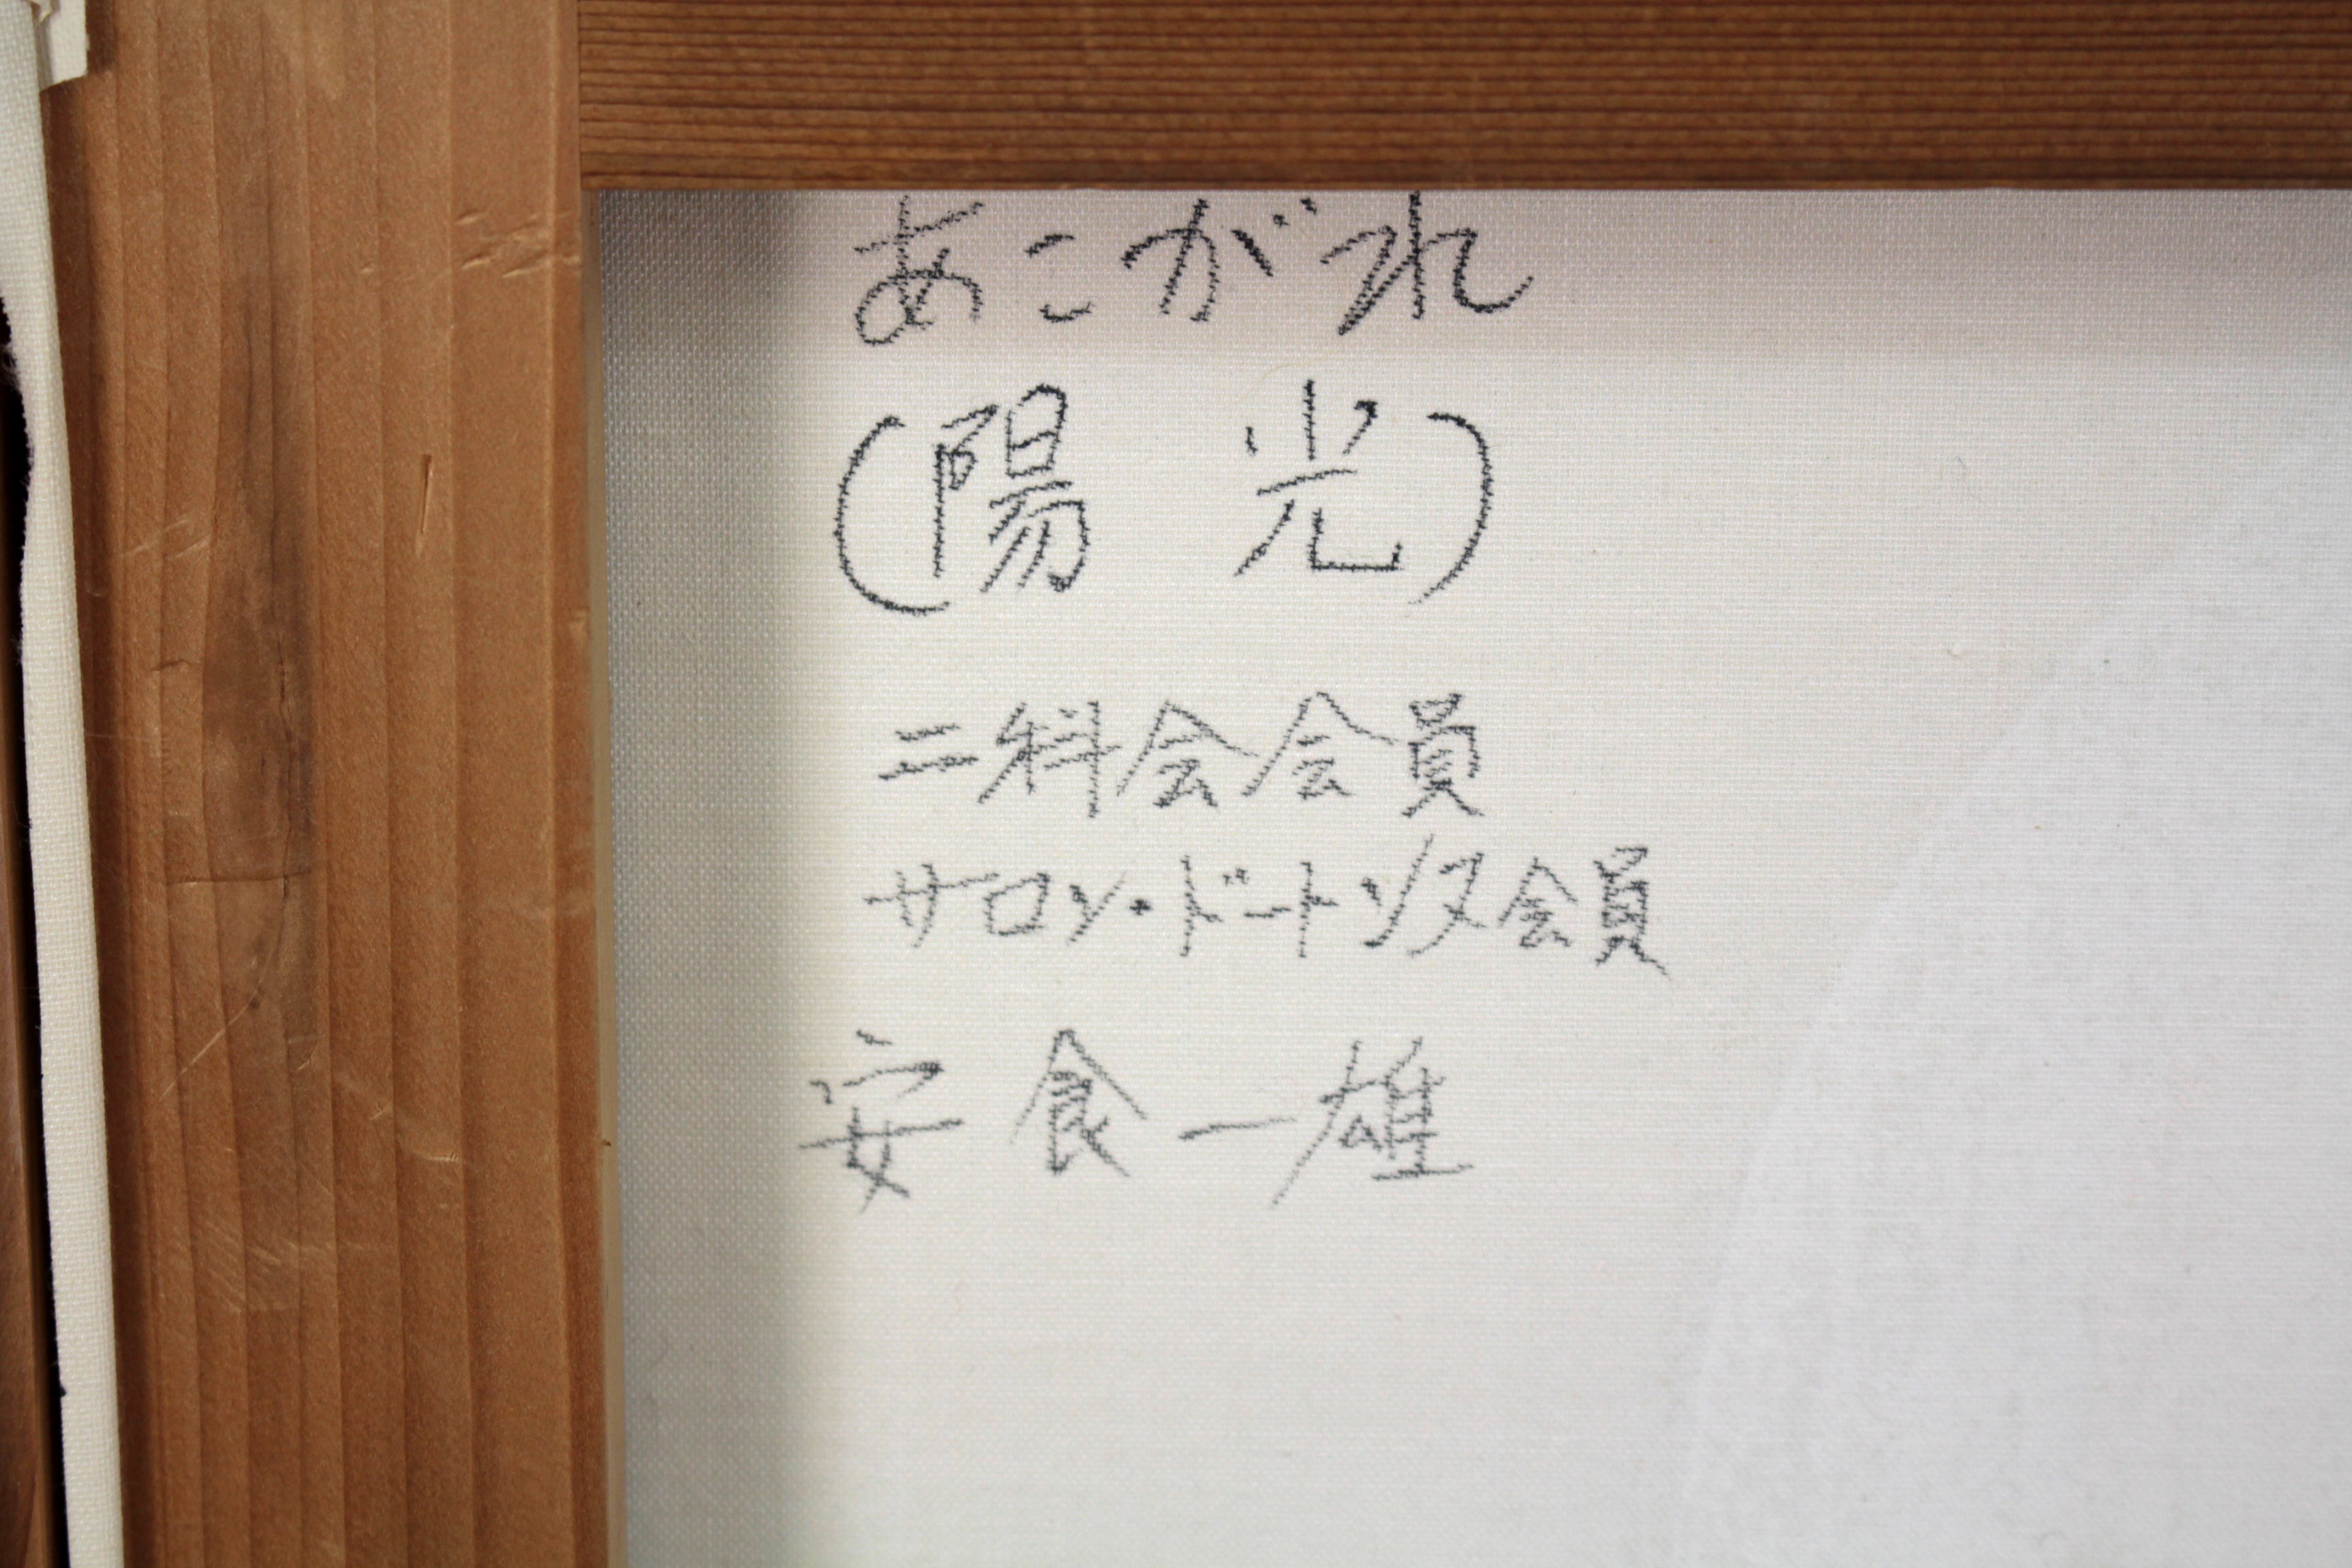 あこがれ
(陽 光)
二科会会員
サロン・ドートンヌ会員
安食一雄